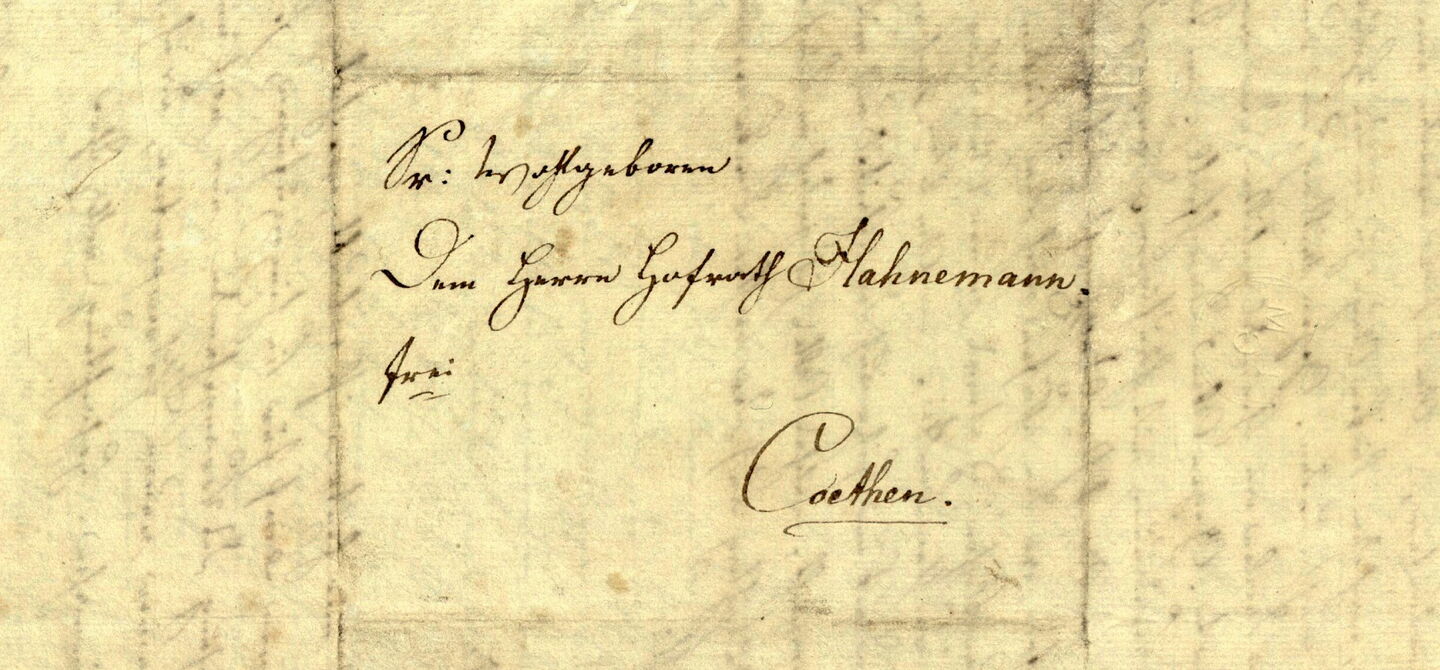 Sr: Wohlgeboren
Dem Herrn Hofrath Hahnemann.
frei
Coethen.